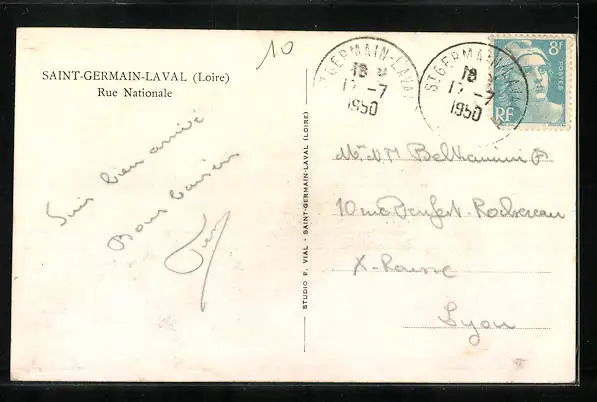 SAINT-GERMAIN-LAVAL (Loire)
Rue Nationale
10
ST GERMAIN-LAVAL
18
12 -7
1950
ST GERMAIN-LAVAL
18
12 -7
1950
8F
POSTES
RF
Suis bien arrivé
Bons baisers
STUDIO P. VIAL - SAINT-GERMAIN-LAVAL (LOIRE)
10 rue Denfert-Rochereau
X-Rousse
Lyon